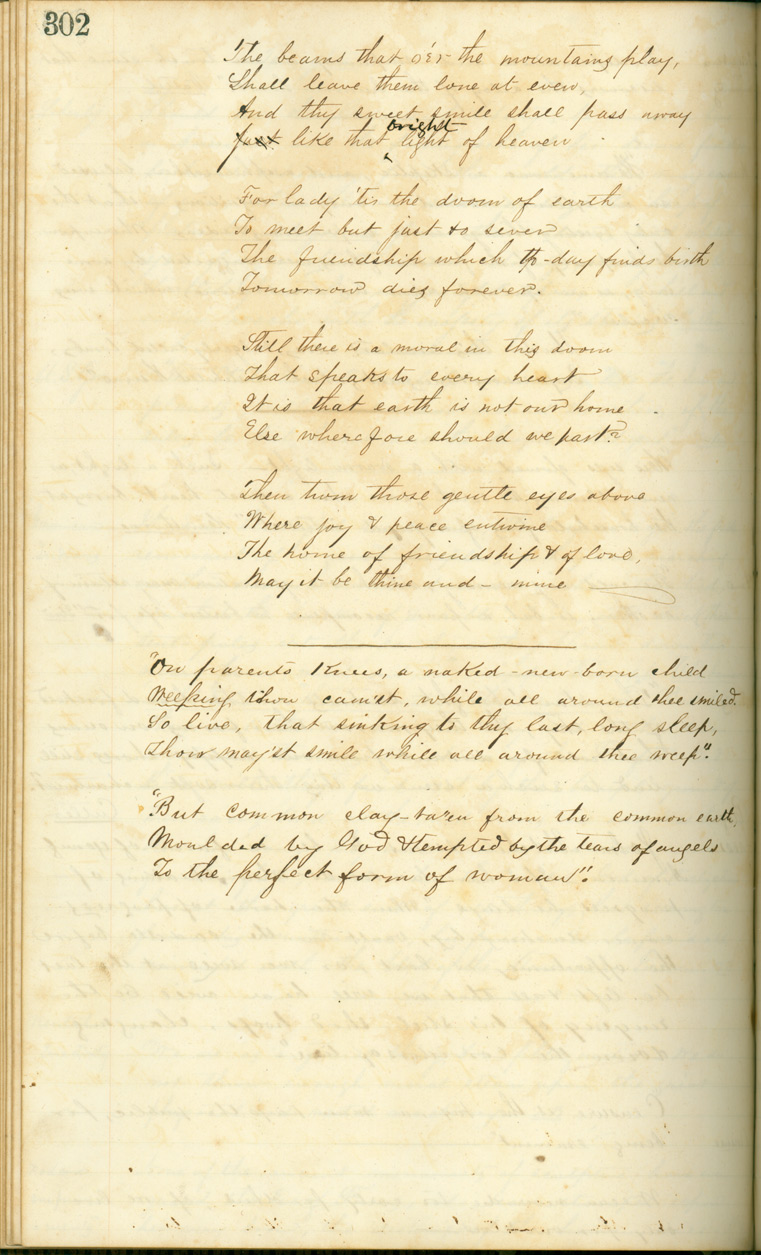 302
The beams that o'er the mountains play,
Shall leave them lone at even,
And thy sweet smile shall pass away
just like that bright light of heaven
For lady 'tis the doom of earth
To meet but just to sever
The friendship which to-day finds birth
Tomorrow dies forever.
Still there is a moral in this doom
That speaks to every heart
It is that earth is not our home
Else wherefore should we part?
Then turn those gentle eyes above
Where joy & peace entwine
The home of friendship & of love,
May it be thine and - mine
"On parents Knees, a naked - new-born child
Weeping thou cam'st, while all around thee smiled.
So live, that sinking to thy last, long sleep,
Thou may'st smile while all around thee weep".
"But common clay - taken from the common earth,
Moulded by God & tempted by the tears of angels
To the perfect form of woman".